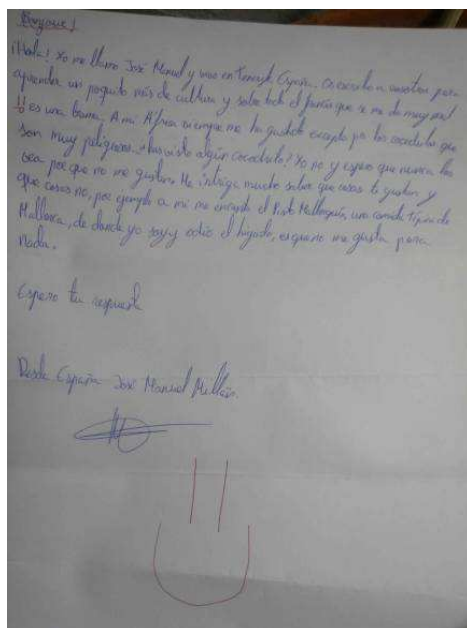 Bonjour!
¡Hola! Yo me llamo José Manuel y vivo en Tenerife, España. Os escribo a vosotros para
aprender un poquito más de cultura y sobre todo el francés que se me da muy mal
es una broma. A mi África siempre me ha gustado excepto por los cocodrilos que
son muy peligrosos. ¿has visto algún cocodrilo? Yo no y espero que nunca los
vea porque no me gustan. Me intriga mucho saber que cosas te gustan y
que cosas no, por ejemplo a mi me encanta el Mallorquín, una comida típica de
Mallorca, de donde yo soy y odio el hígado, es que no me gusta para
nada.
Espero tu respuesta
Desde España José Manuel